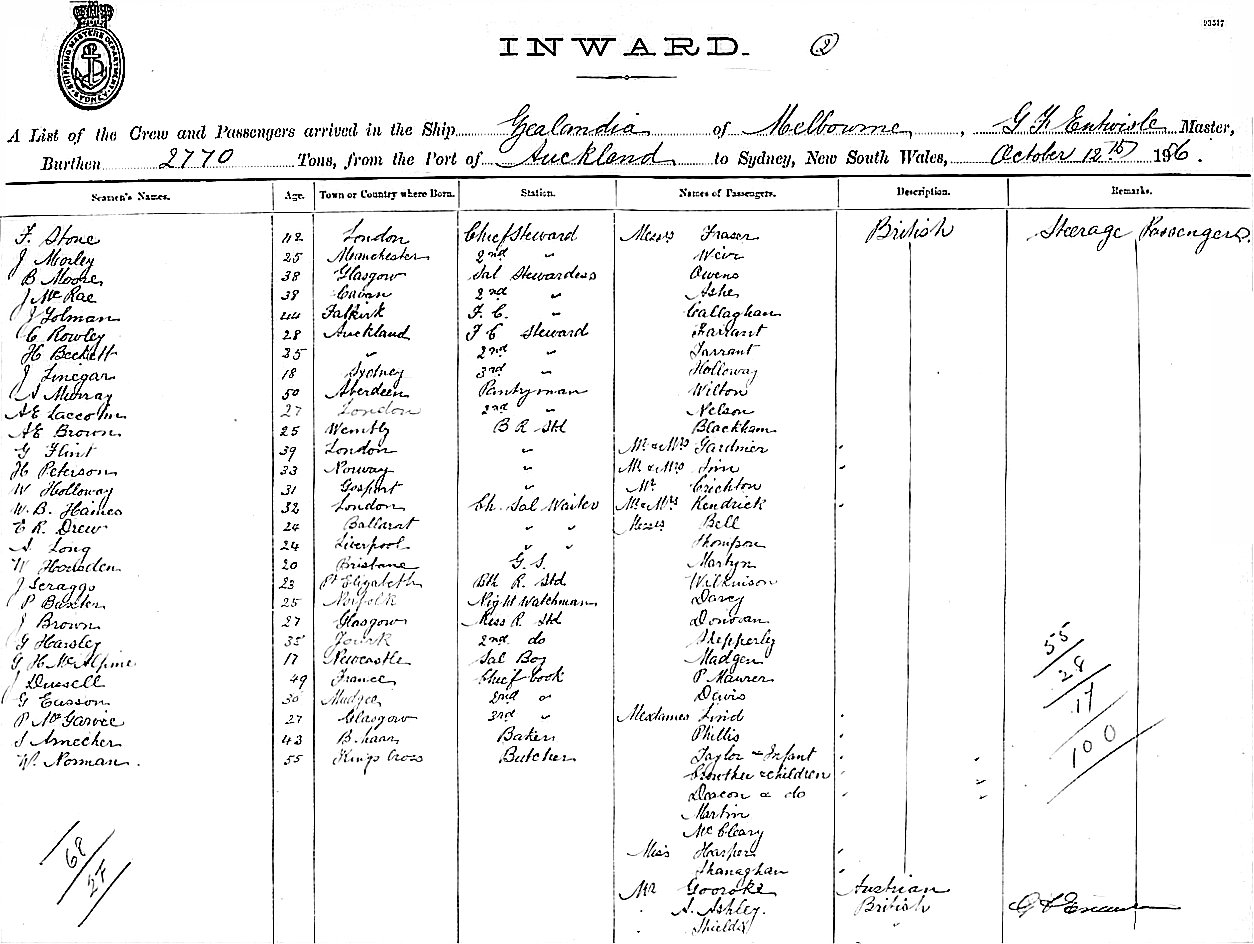 93517
SHIPPING MASTERS DEPARTMENT SYDNEY
INWARD. 2
A List of the Crew and Passengers arrived in the Ship Zealandia of Melbourne, G F Entwisle Master,
Burthen 2770 Tons, from the Port of Auckland to Sydney, New South Wales, October 12th 1906.
Seamen's Names. Age. Town or Country where Born. Station. Names of Passengers. Description. Remarks.
F. Stone 42 London Chief Steward Messrs Fraser British Steerage Passengers.
J Morley 25 Manchester 2nd " Weir
B Moore 38 Glasgow Sal Stewardess Owens
J McRae 38 Cavan 2nd " Ashe
J Tolman 44 Falkirk F. C. " Callaghan
C Rowley 28 Auckland F C Steward Farrant
H Beckett 35 " 2nd " Tarrant
J Linegar 18 Sydney 3rd " Holloway
A Murray 50 Aberdeen Pantryman Wilton
AE Laccohn 27 London 2nd " Nelson
AE Brown 25 Wembly B R Std Blackham
G Flint 39 London " Mr & Mrs Gardiner "
H Peterson 33 Norway " Mr & Mrs Sim "
W Holloway 31 Gosport " Mr Crichton
W. B. Haines 32 London Ch. Sal Waiter Mr & Mrs Kendrick "
E R. Drew 24 Ballarat " " Messrs Bell
A Long 24 Liverpool " " Thompson
W Housden 20 Brisbane G. S. Martyn
J Scraggs 23 Pt Elizabeth Bth R. Std Wilkinson
P Baxter 25 Norfolk Night Watchman Darcy
J Brown 27 Glasgow Mess R. Std Donovan
G Harsley 35 2nd do Shepperly
G H McAlpine 17 Newcastle Sal Boy Madgen
J Dussell 49 France Chief Cook P Maurer
G Easson 30 Mudgee 2nd " Davis
P McGarvie 27 Glasgow 3rd " Mesdames Lind "
J Amecker 43 Baker Phillis "
W. Norman. 55 Kings Cross Butcher Taylor & Infant " "
Crowther & children " "
Deacon & do " "
Martin
McCleary
Miss Harper "
Shanaghan "
Mr Gooroke Austrian
" A. Ashley. British
" Shields "
55
28
17
100
68
27